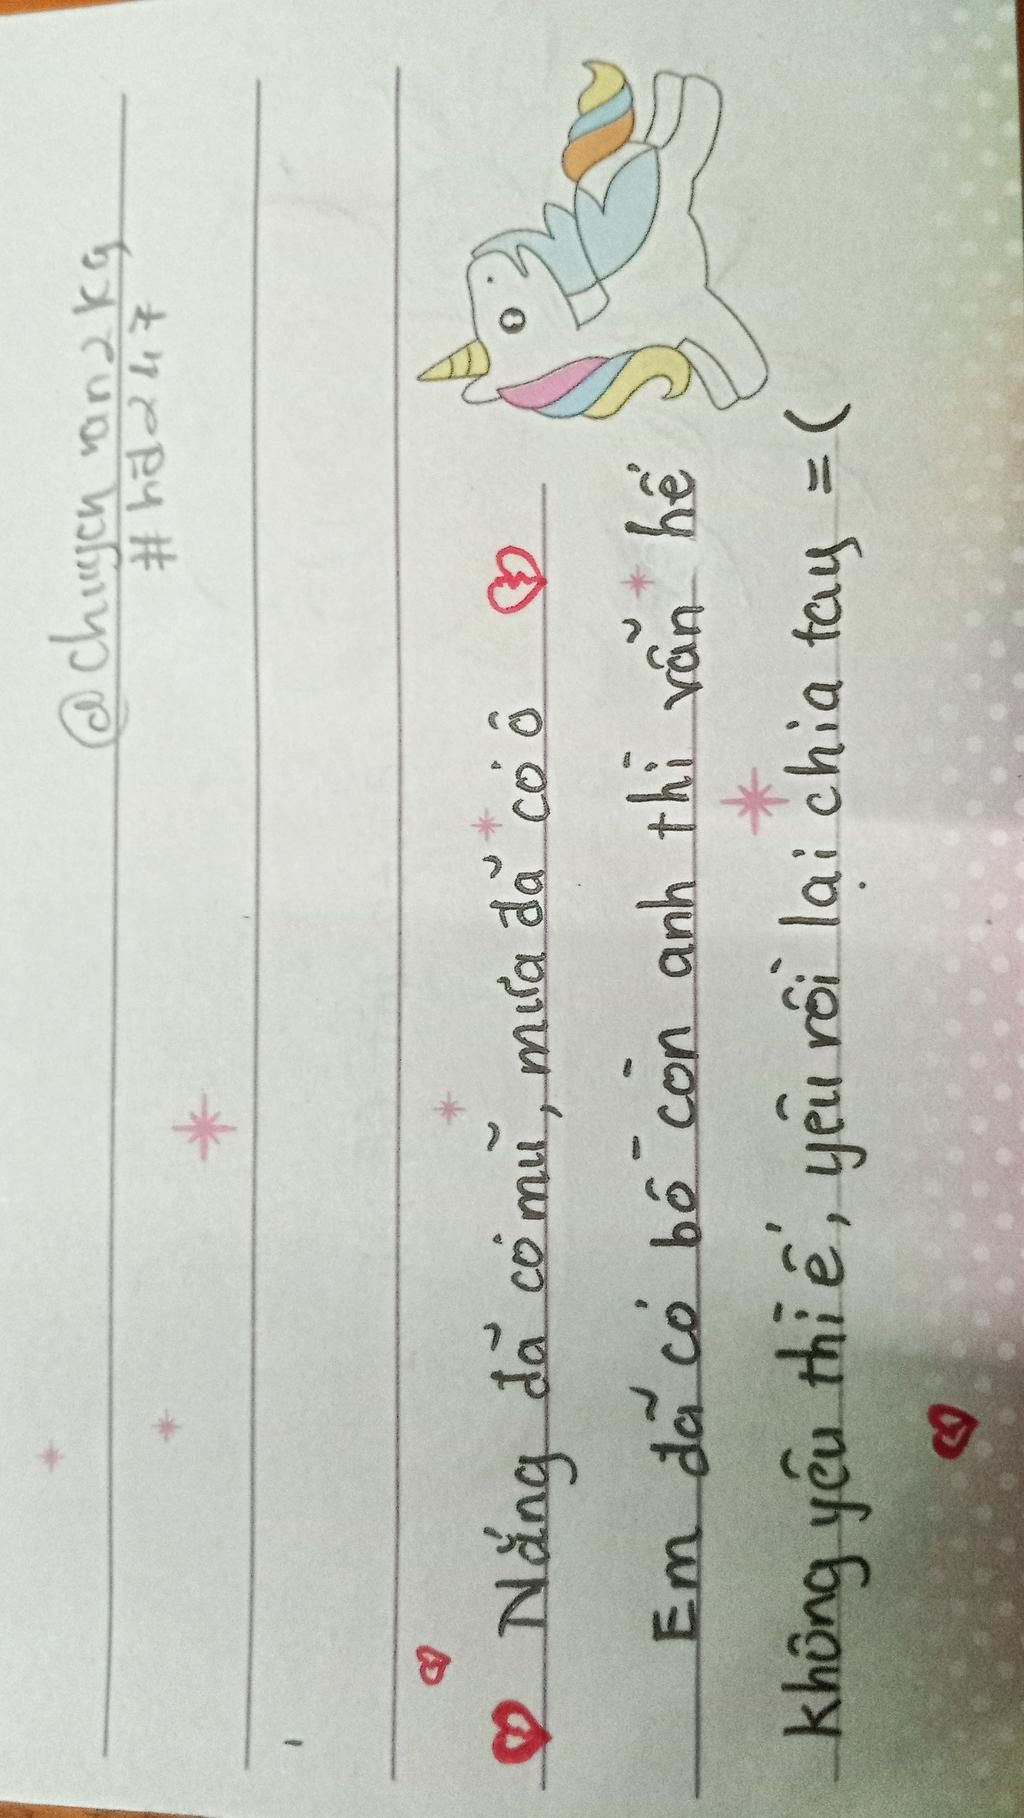 @chuyenvan2kg
#hd247
Nắng đã có mũ, mưa đã có ô
Em đã có bồ còn anh thì vẫn hế
không yêu thì ế, yêu rồi lại chia tay =(